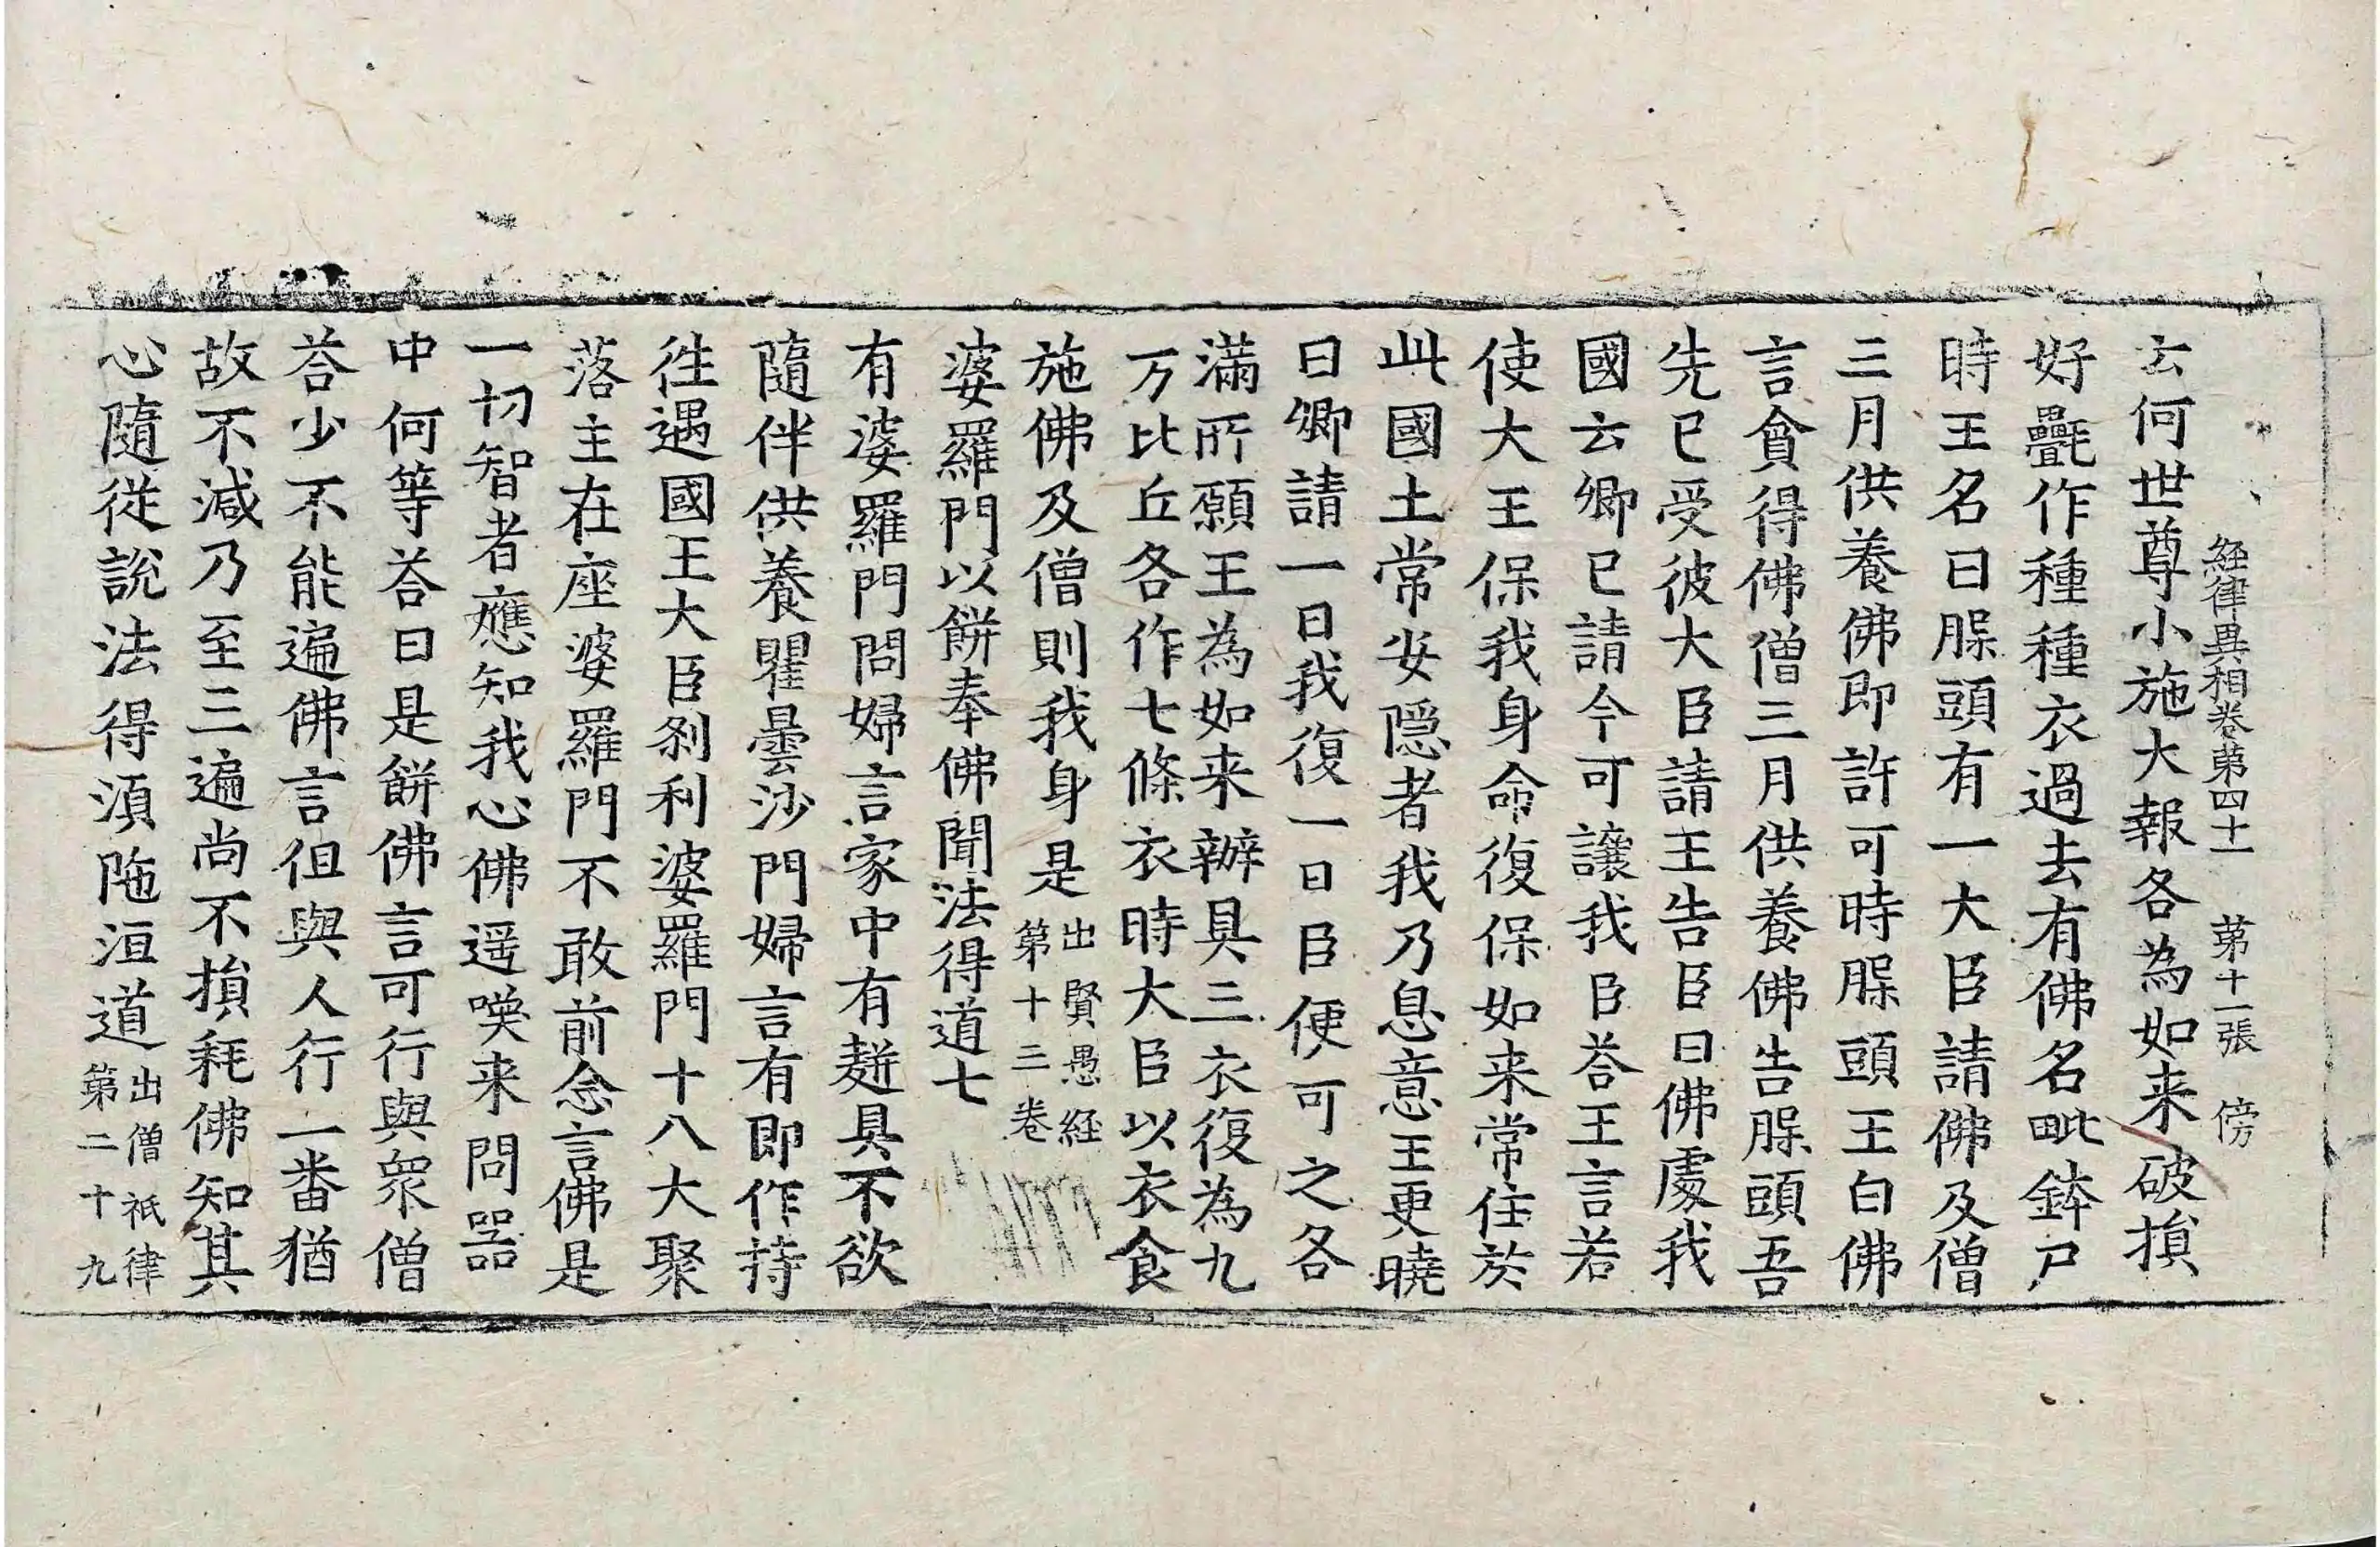 経律異相卷苐四十一　苐十一張　傍
云何世尊小施大報各為如来破損
好氎作種種衣過去有佛名毗鉢尸
時王名曰脵頭有一大臣請佛及僧
三月供養佛即許可時脵頭王白佛
言貪得佛僧三月供養佛告脵頭吾
先已受彼大臣請王告臣曰佛處我
國云卿已請今可讓我臣荅王言若
使大王保我身命復保如来常住於
此國土常安隱者我乃息意王更曉
曰卿請一日我復一日臣便可之各
滿所願王為如来辦具三衣復為九
万比丘各作七條衣時大臣以衣食
施佛及僧則我身是出賢愚経第十三卷
婆羅門以餅奉佛聞法得道七
有婆羅門問婦言家中有麨具不欲
隨伴供養瞿曇沙門婦言有即作持
往遇國王大臣刹利婆羅門十八大聚
落主在座婆羅門不敢前念言佛是
一切智者應知我心佛遥喚来問器
中何等荅曰是餅佛言可行與衆僧
荅少不能遍佛言但與人行一番猶
故不減乃至三遍尚不損秏佛知其
心隨從說法得湏陁洹道出僧祇律第二十九